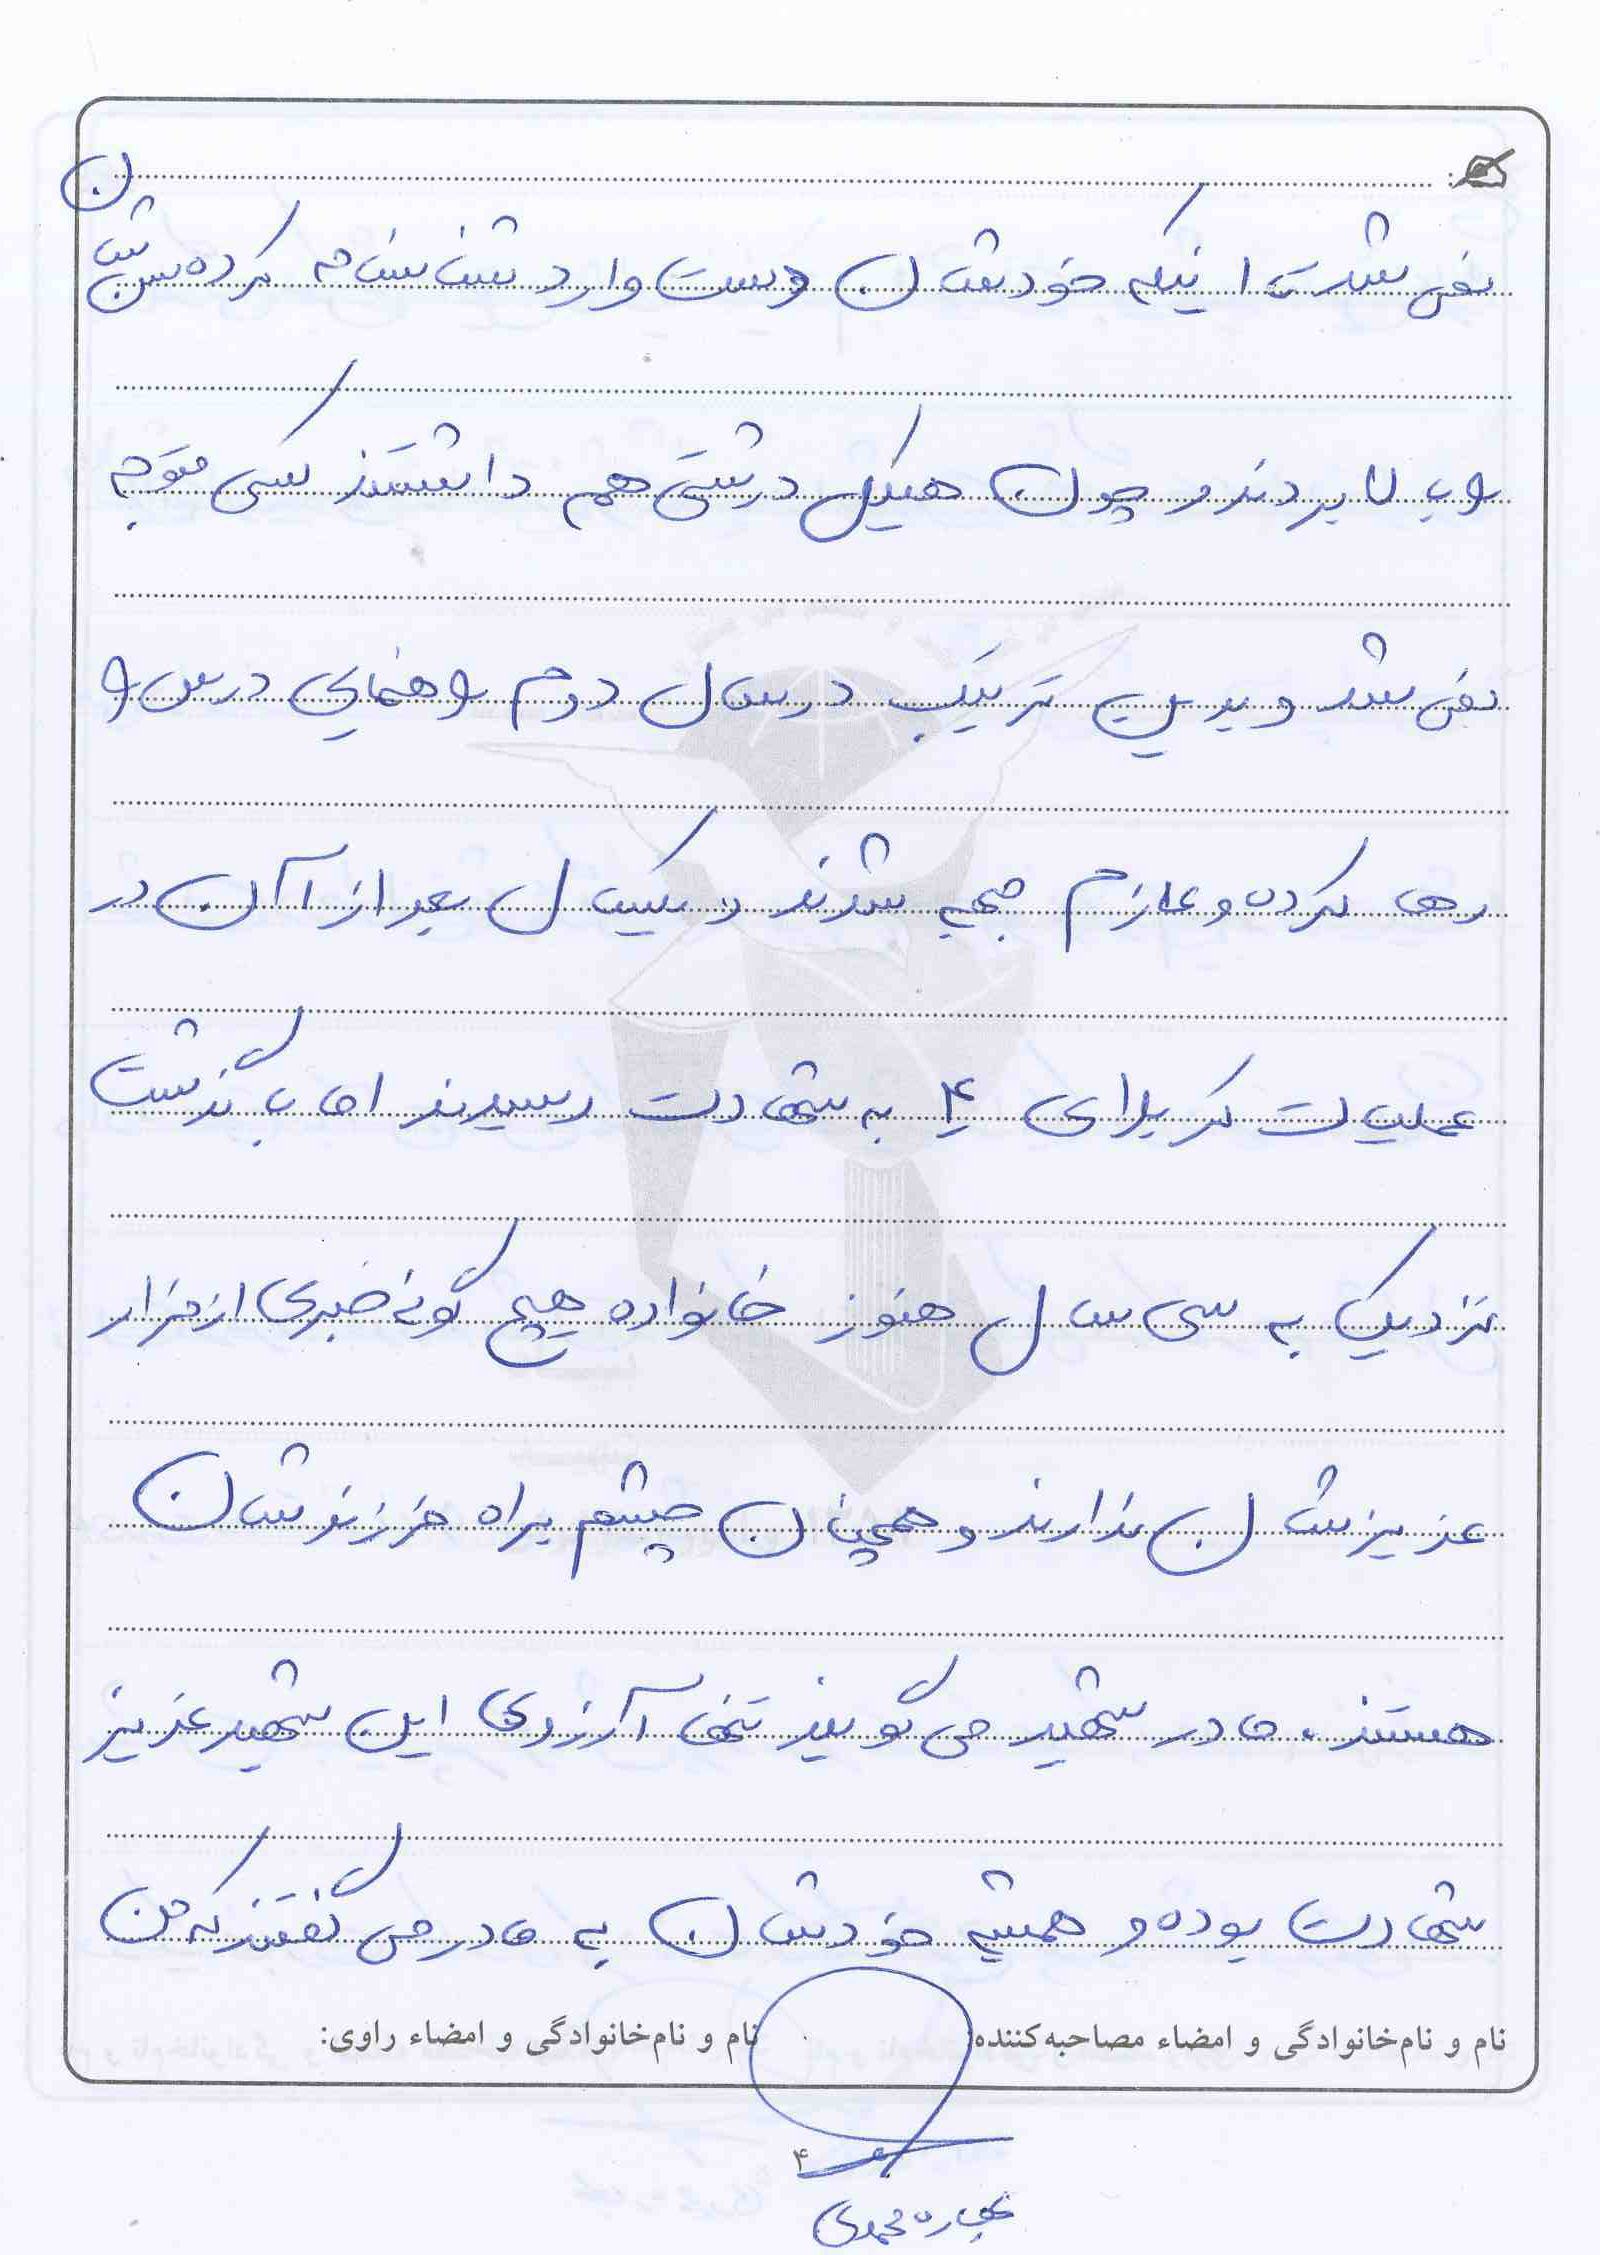 نمی شد تا اینکه خودشان دست وارد شناسنامه کرده سن شان
را بالا بردند و چون هیکل درشتی هم داشتند کسی متوجه
نمی شد و بدین ترتیب در سال دوم راهنمایی درس را
رها کرده و عازم جبهه شدند و یکسال بعد از آن در
عملیات کربلای ۴ به شهادت رسیدند اما با گذشت
نزدیک به سی سال هنوز خانواده هیچ گونه خبری از مزار
عزیزشان ندارند و همچنان چشم براه فرزندشان
هستند. مادر شهید می گویند تنها آرزوی این شهید عزیز
شهادت بوده و همیشه خودشان به مادر می گفتند که من
نام و نام‌خانوادگی و امضاء مصاحبه‌کننده: نام و نام‌خانوادگی و امضاء راوی:
۴
محمدی